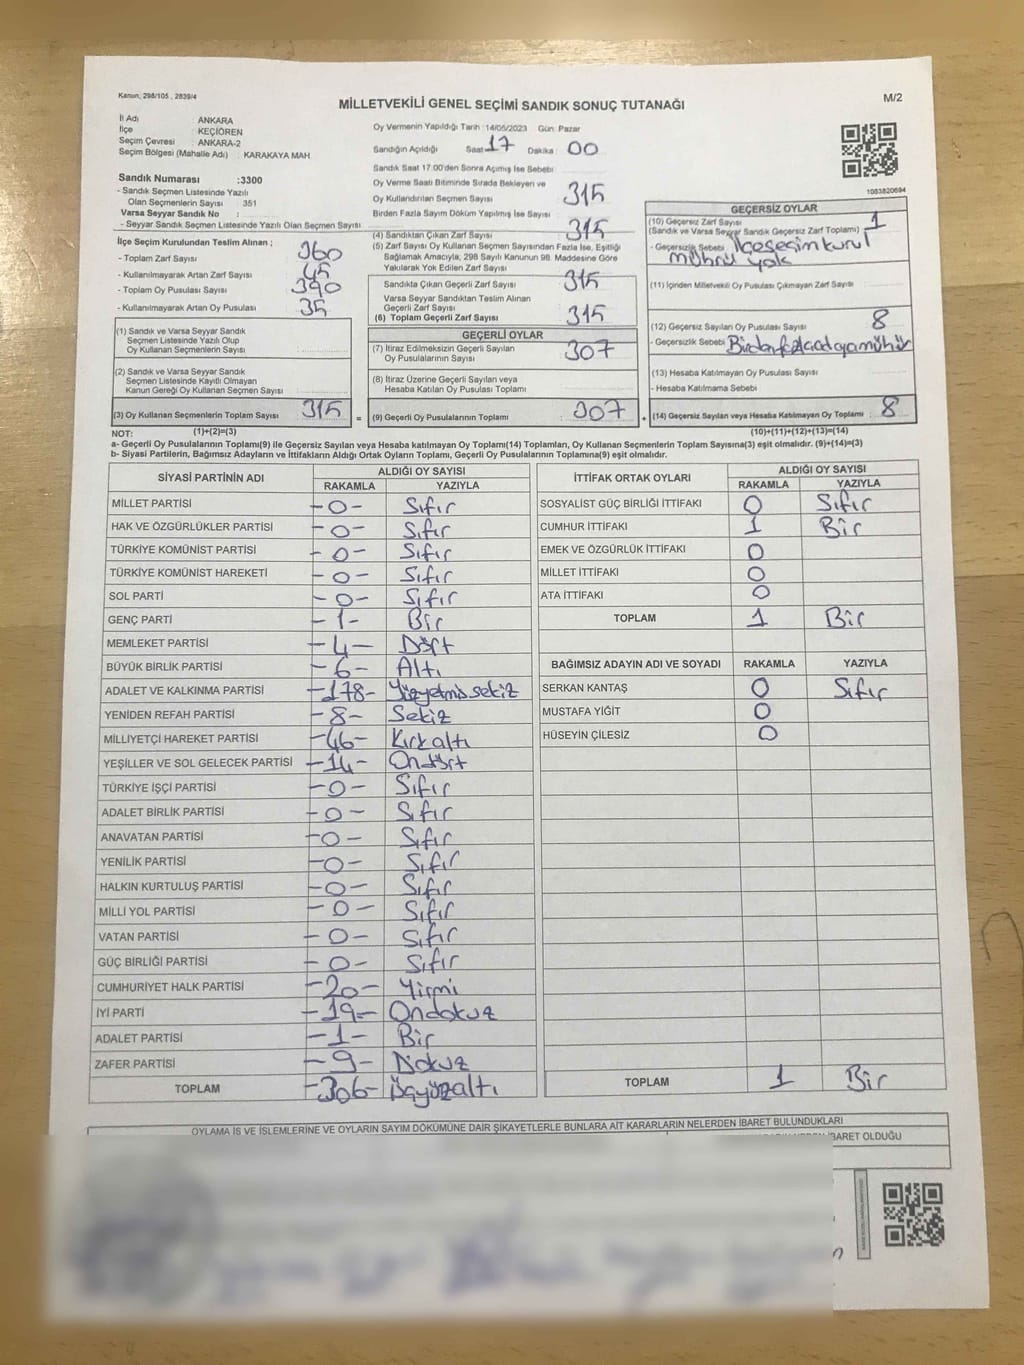 Kanun, 298/105 , 2839/4
MİLLETVEKİLİ GENEL SEÇİMİ SANDIK SONUÇ TUTANAĞI
M/2
İl Adı : ANKARA
İlçe : KEÇİÖREN
Seçim Çevresi : ANKARA-2
Seçim Bölgesi (Mahalle Adı) : KARAKAYA MAH
Sandık Numarası :3300
- Sandık Seçmen Listesinde Yazılı
Olan Seçmenlerin Sayısı 351
Varsa Seyyar Sandık No :
- Seyyar Sandık Seçmen Listesinde Yazılı Olan Seçmen Sayısı
İlçe Seçim Kurulundan Teslim Alınan ;
- Toplam Zarf Sayısı 360
- Kullanılmayarak Artan Zarf Sayısı 45
- Toplam Oy Pusulası Sayısı 390
- Kullanılmayarak Artan Oy Pusulası 35
(1) Sandık ve Varsa Seyyar Sandık
Seçmen Listesinde Yazılı Olup
Oy Kullanan Seçmenlerin Sayısı
(2) Sandık ve Varsa Seyyar Sandık
Seçmen Listesinde Kayıtlı Olmayan
Kanun Gereği Oy Kullanan Seçmen Sayısı
(3) Oy Kullanan Seçmenlerin Toplam Sayısı 315 =
Oy Vermenin Yapıldığı Tarih 14/05/2023 Gün: Pazar
Sandığın Açıldığı Saat 17 Dakika : 00
Sandık Saat 17.00'den Sonra Açımış İse Sebebi
Oy Verme Saati Bitiminde Sırada Bekleyen ve
Oy Kullandırılan Seçmen Sayısı 315
Birden Fazla Sayım Döküm Yapılmış İse Sayısı
(4) Sandıktan Çıkan Zarf Sayısı 315
(5) Zarf Sayısı Oy Kullanan Seçmen Sayısından Fazla İse, Eşitliği
Sağlamak Amacıyla, 298 Sayılı Kanunun 98. Maddesine Göre
Yakılarak Yok Edilen Zarf Sayısı
Sandıkta Çıkan Geçerli Zarf Sayısı 315
Varsa Seyyar Sandıktan Teslim Alınan
Geçerli Zarf Sayısı
(6) Toplam Geçerli Zarf Sayısı 315
GEÇERLİ OYLAR
(7) İtiraz Edilmeksizin Geçerli Sayılan
Oy Pusulalarının Sayısı 307
(8) İtiraz Üzerine Geçerli Sayılan veya
Hesaba Katılan Oy Pusulası Toplamı
(9) Geçerli Oy Pusulalarının Toplamı : 307 +
1083820694
GEÇERSİZ OYLAR
(10) Geçersiz Zarf Sayısı
(Sandık ve Varsa Seyyar Sandık Geçersiz Zarf Toplamı) 1
- Geçersizlik Sebebi İlçeseçimkurul
mührü yok
(11) İçinden Milletvekili Oy Pusulası Çıkmayan Zarf Sayısı
(12) Geçersiz Sayılan Oy Pusulası Sayısı 8
- Geçersizlik Sebebi Birden fazla adaya mühür
(13) Hesaba Katılmayan Oy Pusulası Sayısı
- Hesaba Katılmama Sebebi
(14) Geçersiz Sayılan veya Hesaba Katılmayan Oy Toplamı : 8
NOT: (1)+(2)=(3) (10)+(11)+(12)+(13)=(14)
a- Geçerli Oy Pusulalarının Toplamı(9) ile Geçersiz Sayılan veya Hesaba katılmayan Oy Toplamı(14) Toplamları, Oy Kullanan Seçmenlerin Toplam Sayısına(3) eşit olmalıdır. (9)+(14)=(3)
b- Siyasi Partilerin, Bağımsız Adayların ve İttifakların Aldığı Ortak Oyların Toplamı, Geçerli Oy Pusulalarının Toplamına(9) eşit olmalıdır.
SİYASİ PARTİNİN ADI ALDIĞI OY SAYISI
RAKAMLA YAZIYLA
MİLLET PARTİSİ -0- Sıfır
HAK VE ÖZGÜRLÜKLER PARTİSİ -0- Sıfır
TÜRKİYE KOMÜNİST PARTİSİ -0- Sıfır
TÜRKİYE KOMÜNİST HAREKETİ -0- Sıfır
SOL PARTİ -0- Sıfır
GENÇ PARTİ -1- Bir
MEMLEKET PARTİSİ -4- Dört
BÜYÜK BİRLİK PARTİSİ -6- Altı
ADALET VE KALKINMA PARTİSİ -178- Yüzyetmişsekiz
YENİDEN REFAH PARTİSİ -8- Sekiz
MİLLİYETÇİ HAREKET PARTİSİ -46- Kırkaltı
YEŞİLLER VE SOL GELECEK PARTİSİ -14- Ondört
TÜRKİYE İŞÇİ PARTİSİ -0- Sıfır
ADALET BİRLİK PARTİSİ -0- Sıfır
ANAVATAN PARTİSİ -0- Sıfır
YENİLİK PARTİSİ -0- Sıfır
HALKIN KURTULUŞ PARTİSİ -0- Sıfır
MİLLİ YOL PARTİSİ -0- Sıfır
VATAN PARTİSİ -0- Sıfır
GÜÇ BİRLİĞİ PARTİSİ -0- Sıfır
CUMHURİYET HALK PARTİSİ -20- Yirmi
İYİ PARTİ -19- Ondokuz
ADALET PARTİSİ -1- Bir
ZAFER PARTİSİ -9- Dokuz
TOPLAM -306- Üçyüzaltı
İTTİFAK ORTAK OYLARI ALDIĞI OY SAYISI
RAKAMLA YAZIYLA
SOSYALİST GÜÇ BİRLİĞİ İTTİFAKI 0 Sıfır
CUMHUR İTTİFAKI 1 Bir
EMEK VE ÖZGÜRLÜK İTTİFAKI 0
MİLLET İTTİFAKI 0
ATA İTTİFAKI 0
TOPLAM 1 Bir
BAĞIMSIZ ADAYIN ADI VE SOYADI RAKAMLA YAZIYLA
SERKAN KANTAŞ 0 Sıfır
MUSTAFA YİĞİT 0
HÜSEYİN ÇİLESİZ 0
TOPLAM 1 Bir
OYLAMA İŞ VE İŞLEMLERİNE VE OYLARIN SAYIM DÖKÜMÜNE DAİR ŞİKAYETLERLE BUNLARA AİT KARARLARIN NELERDEN İBARET BULUNDUKLARI
İBARET OLDUĞU